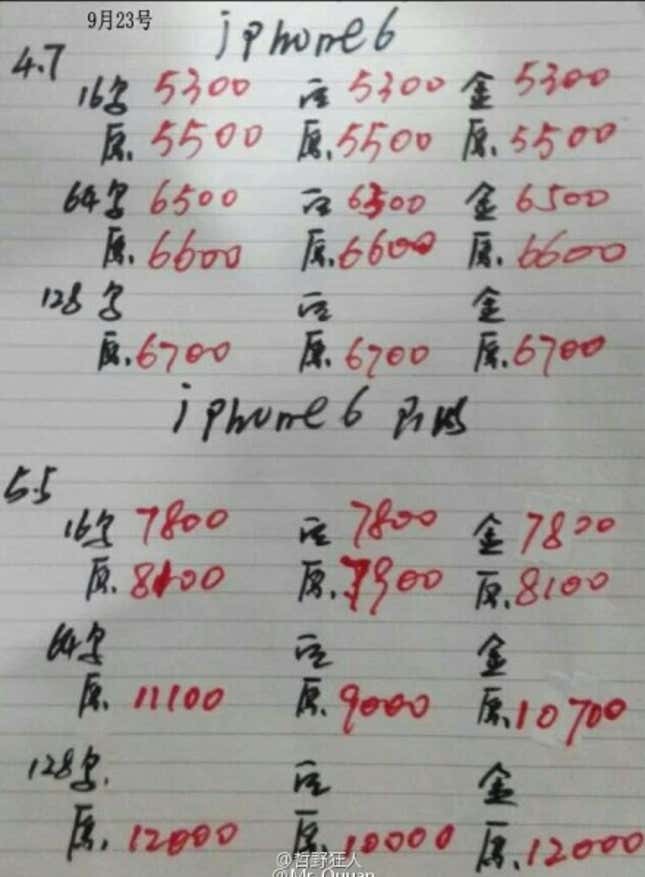 9月23号
iphone6
4.7
16 5300 5300 金 5300
原. 5500 原. 5500 原. 5500
64 6500 6500 金 6500
原. 6600 原. 6600 原. 6600
128 金
原. 6700 原. 6700 原. 6700
iphone6
5.5
16 7800 7800 金 7800
原. 8100 原. 7900 原. 8100
64 金
原. 11100 原. 9000 原. 10700
128 金
原. 12000 原. 10000 原. 12000
@哲野狂人
@Mr_Quuan